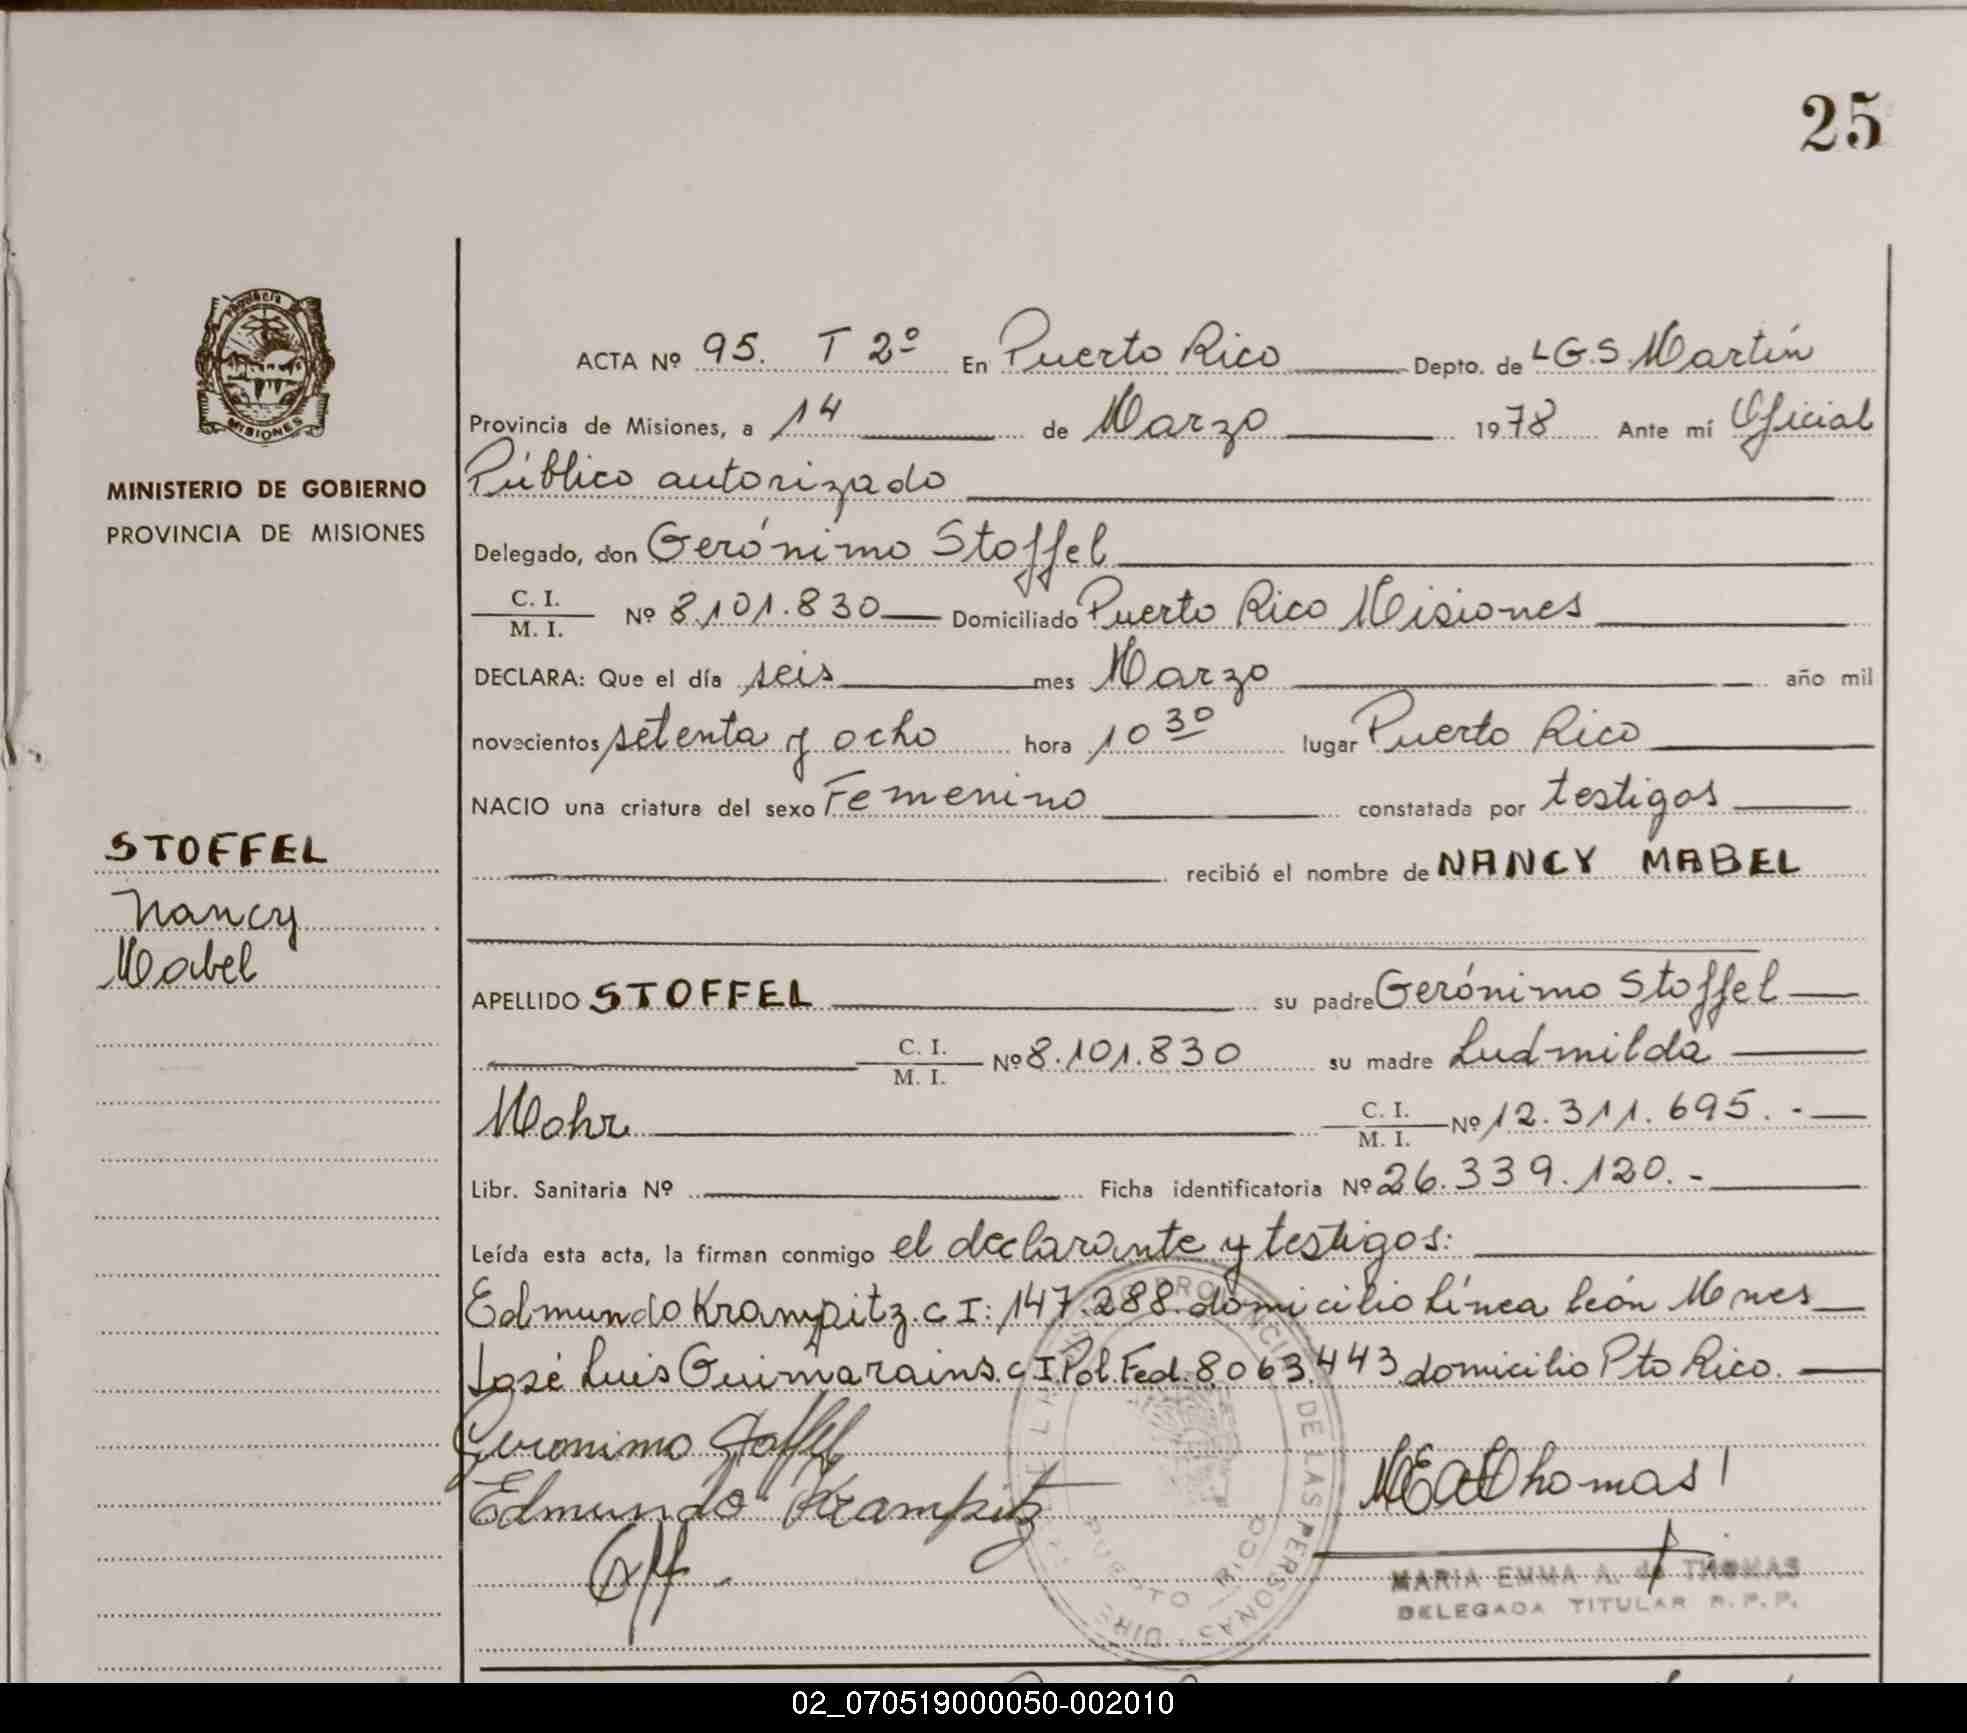 25
Provincia de
MISIONES
MINISTERIO DE GOBIERNO
PROVINCIA DE MISIONES
ACTA Nº 95. T 2º En Puerto Rico Depto. de L G.S. Martín
Provincia de Misiones, a 14 de Marzo 1978 Ante mí Oficial
Público autorizado
Delegado, don Gerónimo Stoffel
C. I.
M. I. Nº 8.101.830 Domiciliado Puerto Rico Misiones
DECLARA: Que el día seis mes Marzo año mil
novecientos setenta y ocho hora 10 30 lugar Puerto Rico
NACIO una criatura del sexo Femenino constatada por testigos
recibió el nombre de NANCY MABEL
STOFFEL
Nancy
Mabel
APELLIDO STOFFEL su padre Gerónimo Stoffel
C. I.
M. I. Nº 8.101.830 su madre Ludmilda
Mohr C. I.
M. I. Nº 12.311.695.-
Libr. Sanitaria Nº Ficha identificatoria Nº 26.339.120.-
Leída esta acta, la firman conmigo el declarante y testigos:
Edmundo Krampitz. C I: 147.288. domicilio Línea León
José Luis Guimarains. C I. Pol. Fed. 8.063.443 domicilio Pto Rico.
Geronimo Stoffel
Edmundo Krampitz
MEA de Thomas
MARIA EMMA A. de THOMAS
DELEGADA TITULAR R.P.P.
PROVINCIAL DE LAS PERSONAS
PUERTO RICO
02_070519000050-002010